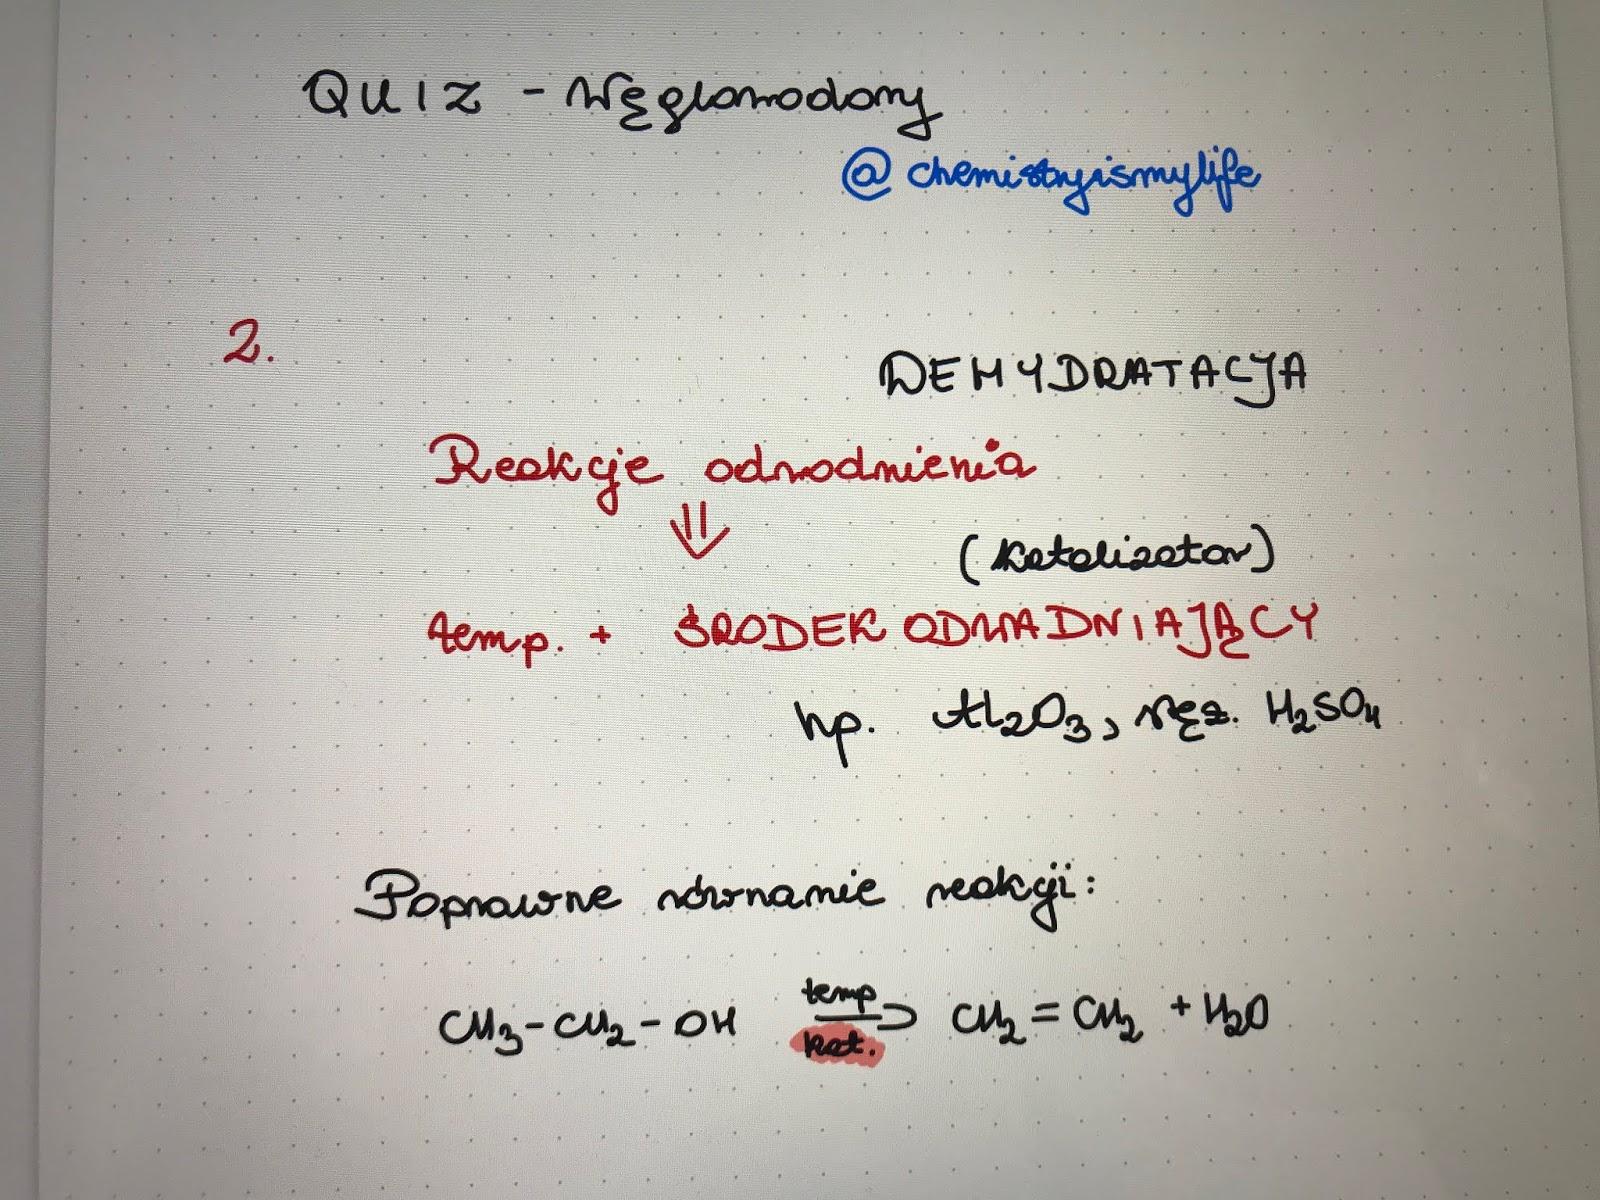 QUIZ - Węglowodory
@chemistryismylife
2.
DEHYDRATACJA
Reakcje odwodnienia
⇓
(katalizator)
temp. + ŚRODEK ODWADNIAJĄCY
np. Al₂O₃, stęż. H₂SO₄
Poprawne równanie reakcji:
temp
CH₃-CH₂-OH → CH₂=CH₂ + H₂O
kat.